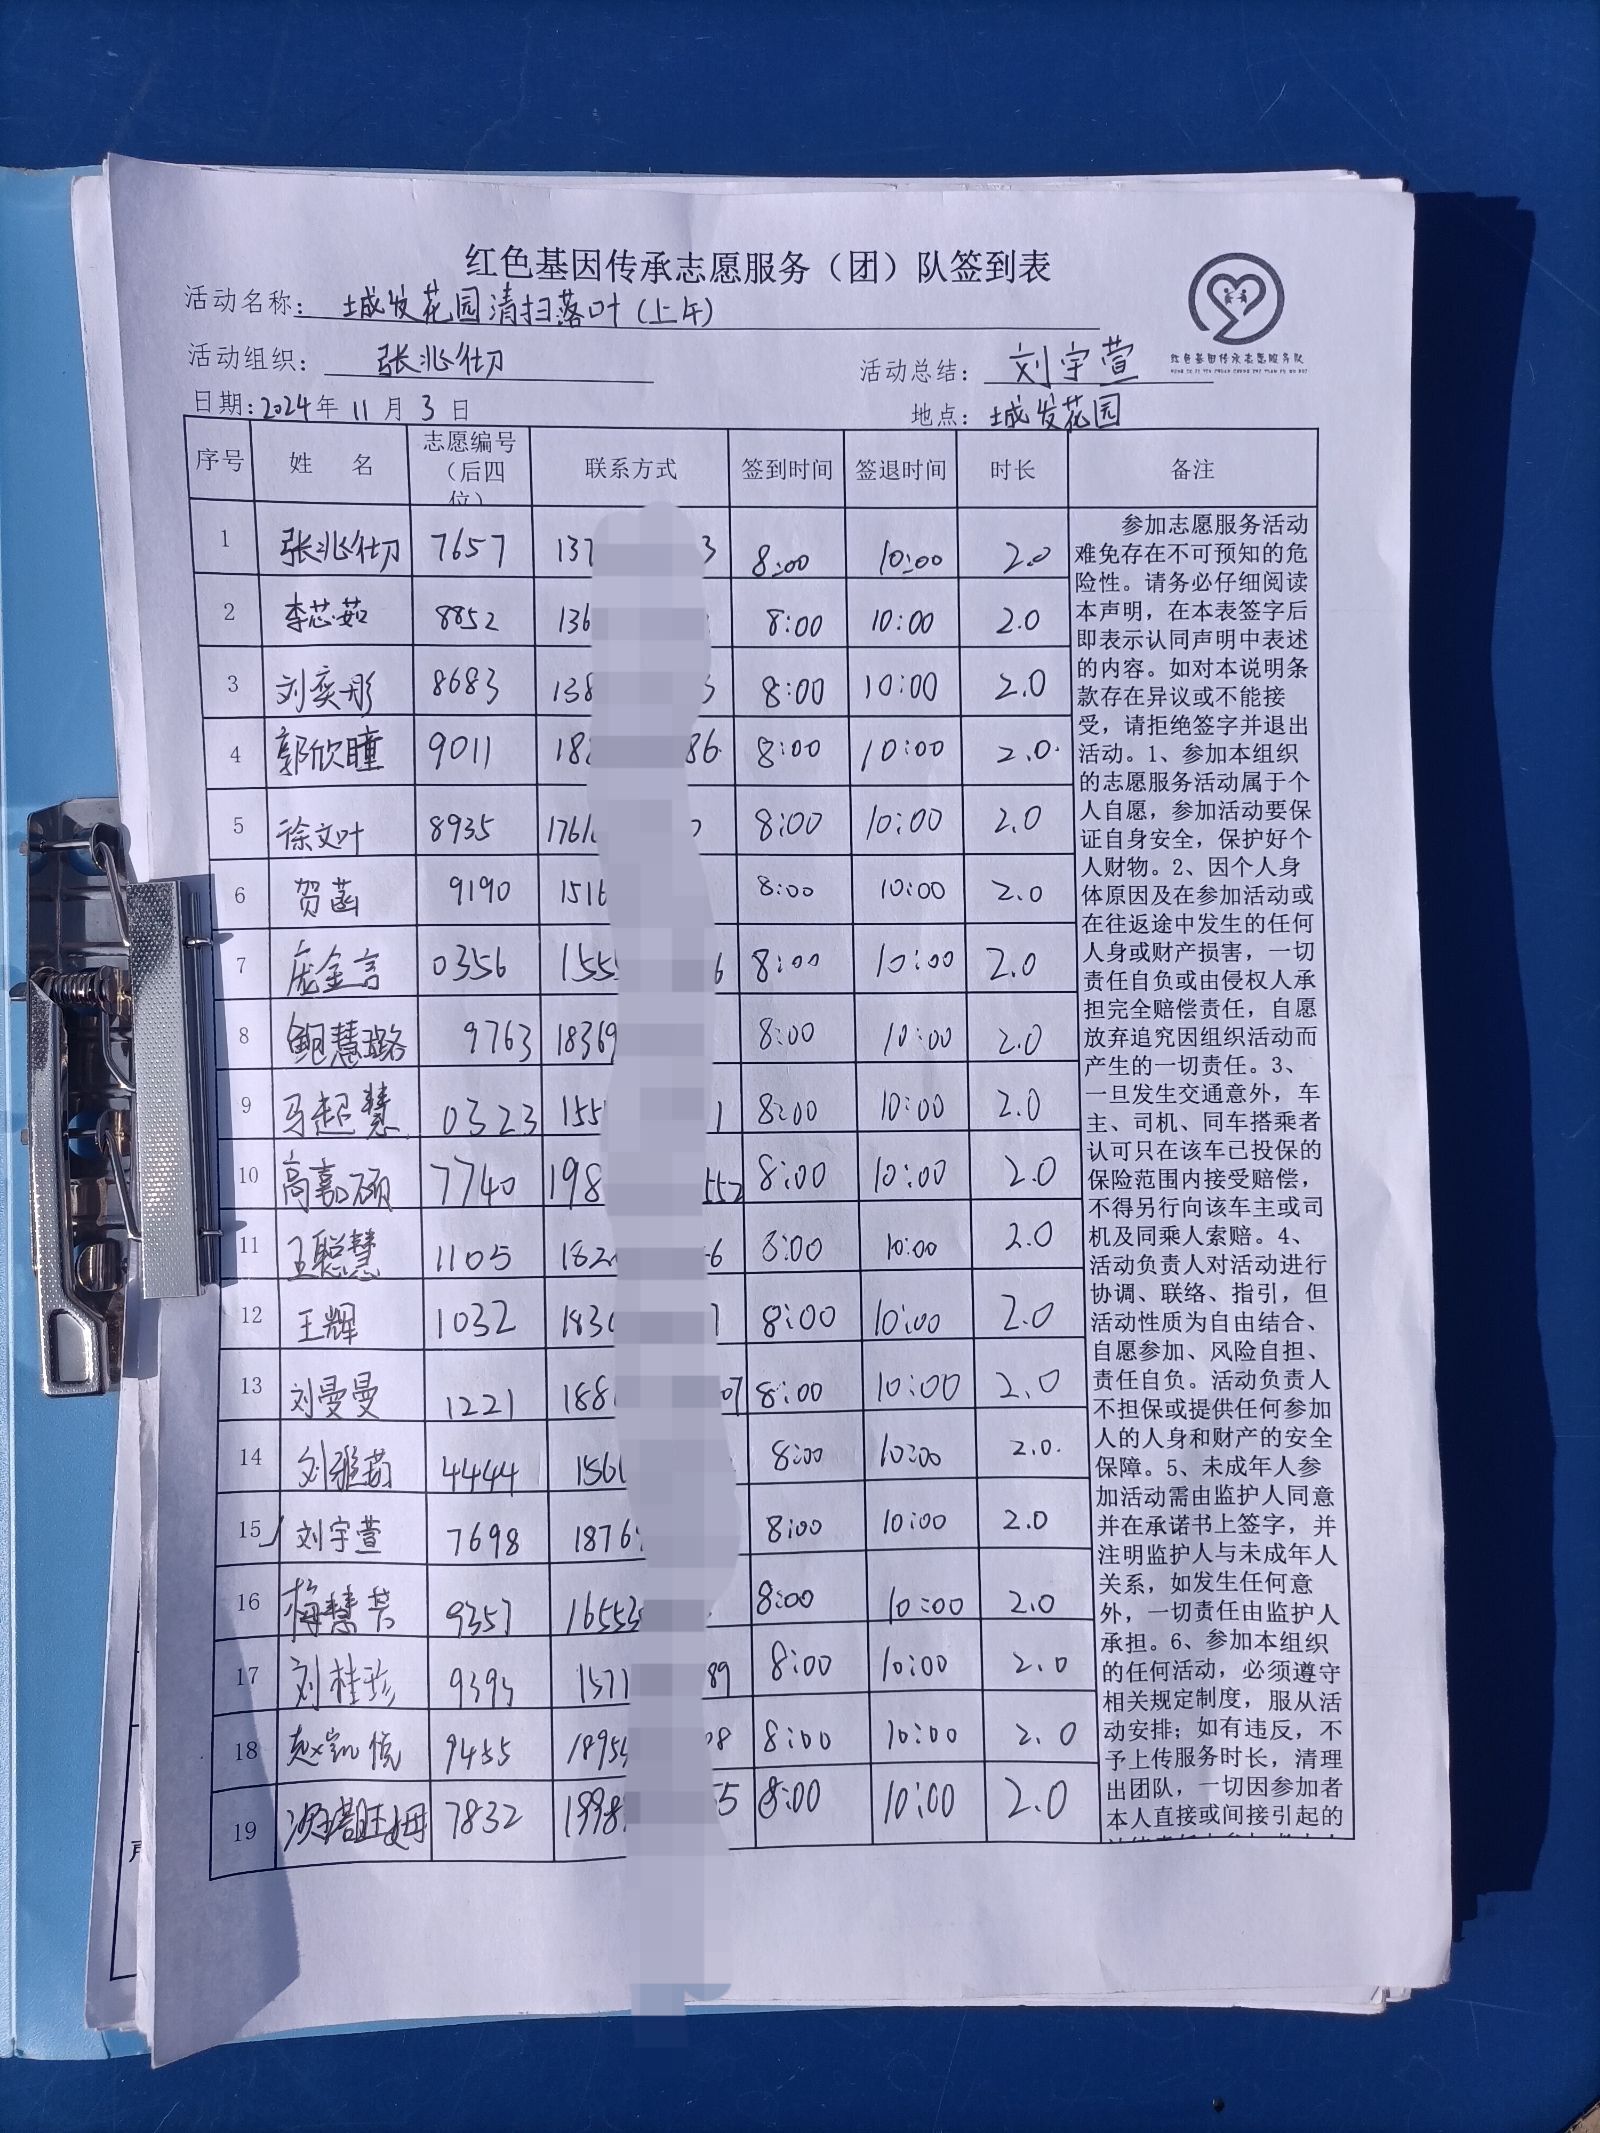 红色基因传承志愿服务（团）队签到表
活动名称：城发花园清扫落叶(上午)
活动组织：张兆仕刀
活动总结：刘宇萱
红色基因传承志愿服务队
日期：2024年 11月 3日
地点：城发花园
序号 姓 名 志愿编号（后四位） 联系方式 签到时间 签退时间 时长 备注
1 张兆仕刀 7657 137 3 8:00 10:00 2.0
2 李芯茹 8852 136 8:00 10:00 2.0
3 刘奕彤 8683 138 3 8:00 10:00 2.0
4 郭欣瞳 9011 18 86 8:00 10:00 2.0
5 徐文叶 8935 1761 8:00 10:00 2.0
6 贺菡 9190 1516 8:00 10:00 2.0
7 庞金言 0356 155 6 8:00 10:00 2.0
8 鲍慧璐 9763 18369 8:00 10:00 2.0
9 马超慧 0323 155 1 8:00 10:00 2.0
10 高嘉硕 7740 198 552 8:00 10:00 2.0
11 王聪慧 1105 182 6 8:00 10:00 2.0
12 王辉 1032 183 8:00 10:00 2.0
13 刘曼曼 1221 188 07 8:00 10:00 2.0
14 刘雅茹 4444 156 8:00 10:00 2.0
15 刘宇萱 7698 1876 8:00 10:00 2.0
16 梅慧 9357 16553 8:00 10:00 2.0
17 刘桂珍 9393 1571 89 8:00 10:00 2.0
18 赵凯悦 9455 1895 08 8:00 10:00 2.0
19 旺姆 7832 1998 5 8:00 10:00 2.0
参加志愿服务活动
难免存在不可预知的危
险性。请务必仔细阅读
本声明，在本表签字后
即表示认同声明中表述
的内容。如对本说明条
款存在异议或不能接
受，请拒绝签字并退出
活动。1、参加本组织
的志愿服务活动属于个
人自愿，参加活动要保
证自身安全，保护好个
人财物。2、因个人身
体原因及在参加活动或
在往返途中发生的任何
人身或财产损害，一切
责任自负或由侵权人承
担完全赔偿责任，自愿
放弃追究因组织活动而
产生的一切责任。3、
一旦发生交通意外，车
主、司机、同车搭乘者
认可只在该车已投保的
保险范围内接受赔偿，
不得另行向该车主或司
机及同乘人索赔。4、
活动负责人对活动进行
协调、联络、指引，但
活动性质为自由结合、
自愿参加、风险自担、
责任自负。活动负责人
不担保或提供任何参加
人的人身和财产的安全
保障。5、未成年人参
加活动需由监护人同意
并在承诺书上签字，并
注明监护人与未成年人
关系，如发生任何意
外，一切责任由监护人
承担。6、参加本组织
的任何活动，必须遵守
相关规定制度，服从活
动安排；如有违反，不
予上传服务时长，清理
出团队，一切因参加者
本人直接或间接引起的